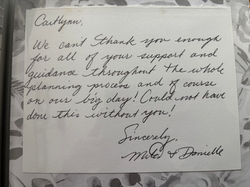 Caitlynn,
We can't thank you enough
for all of your support and
guidance throughout the whole
planning process and of course
on our big day! Could not have
done this without you!
Sincerely,
& Danielle